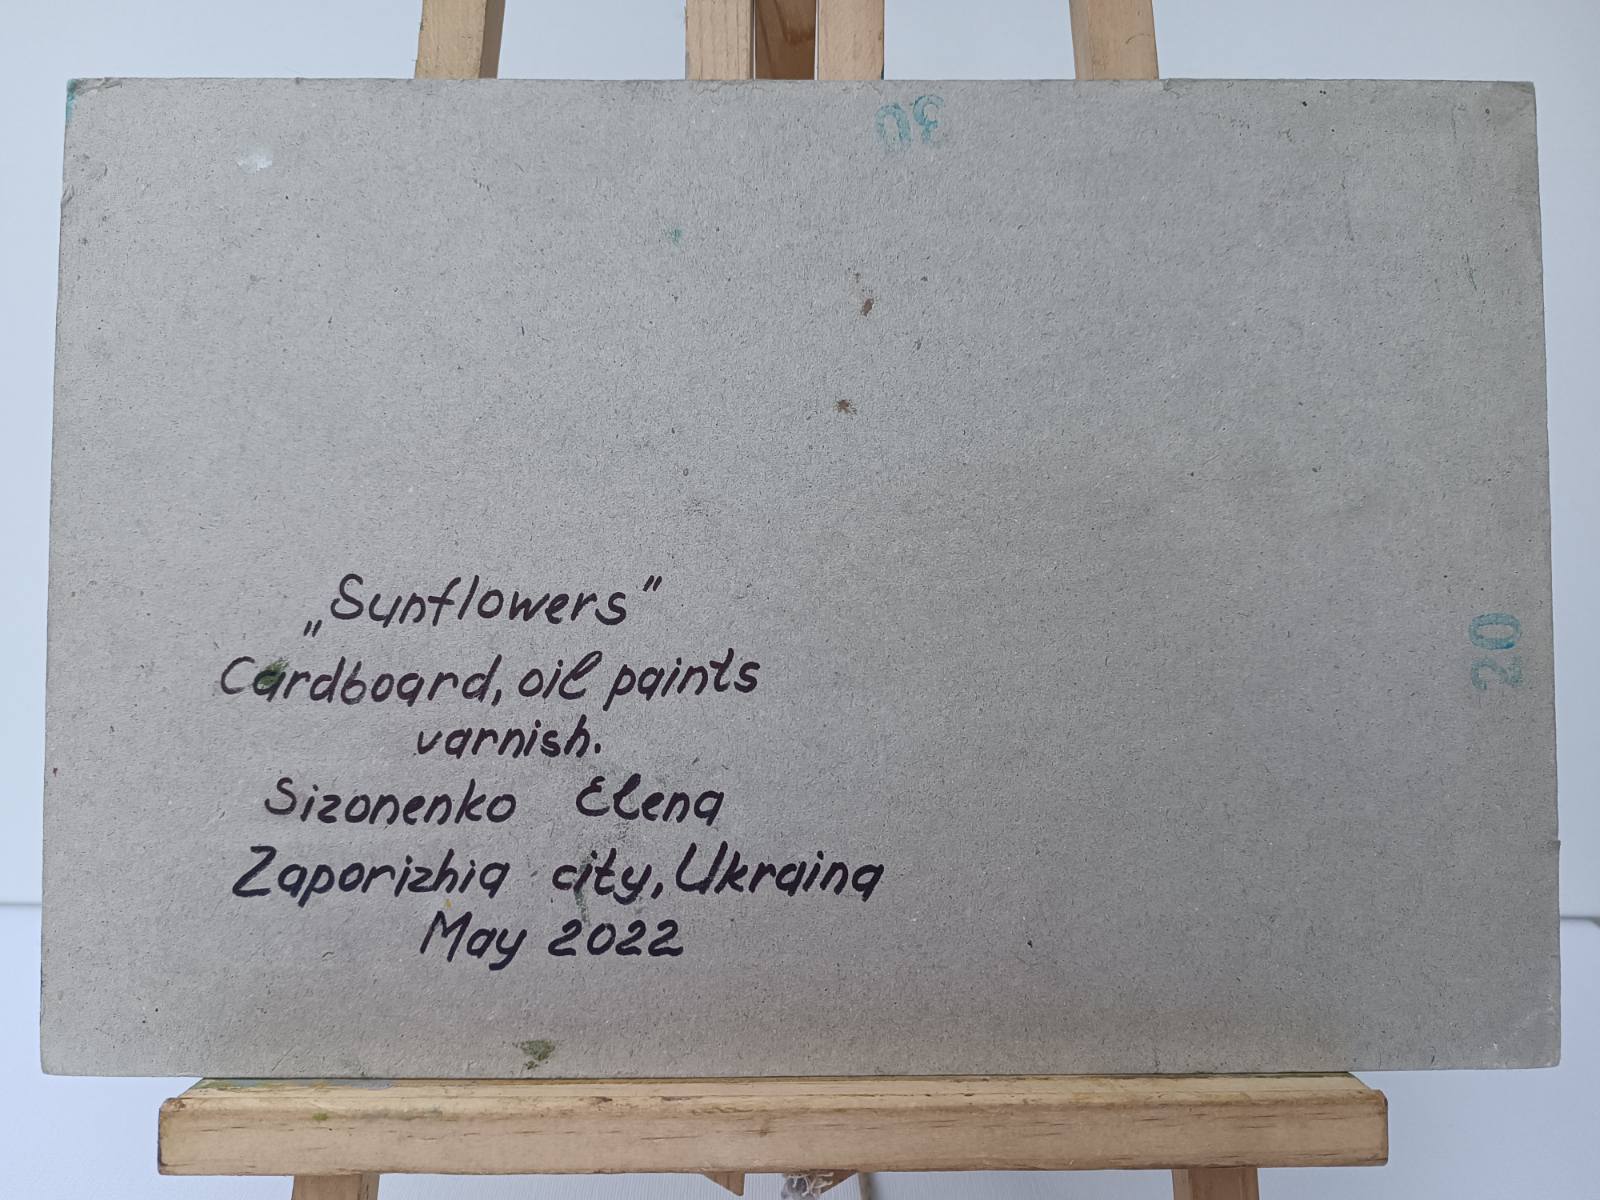 30
20
„Sunflowers”
Cardboard, oil paints
varnish.
Sizonenko Elena
Zaporizhia city, Ukraina
May 2022